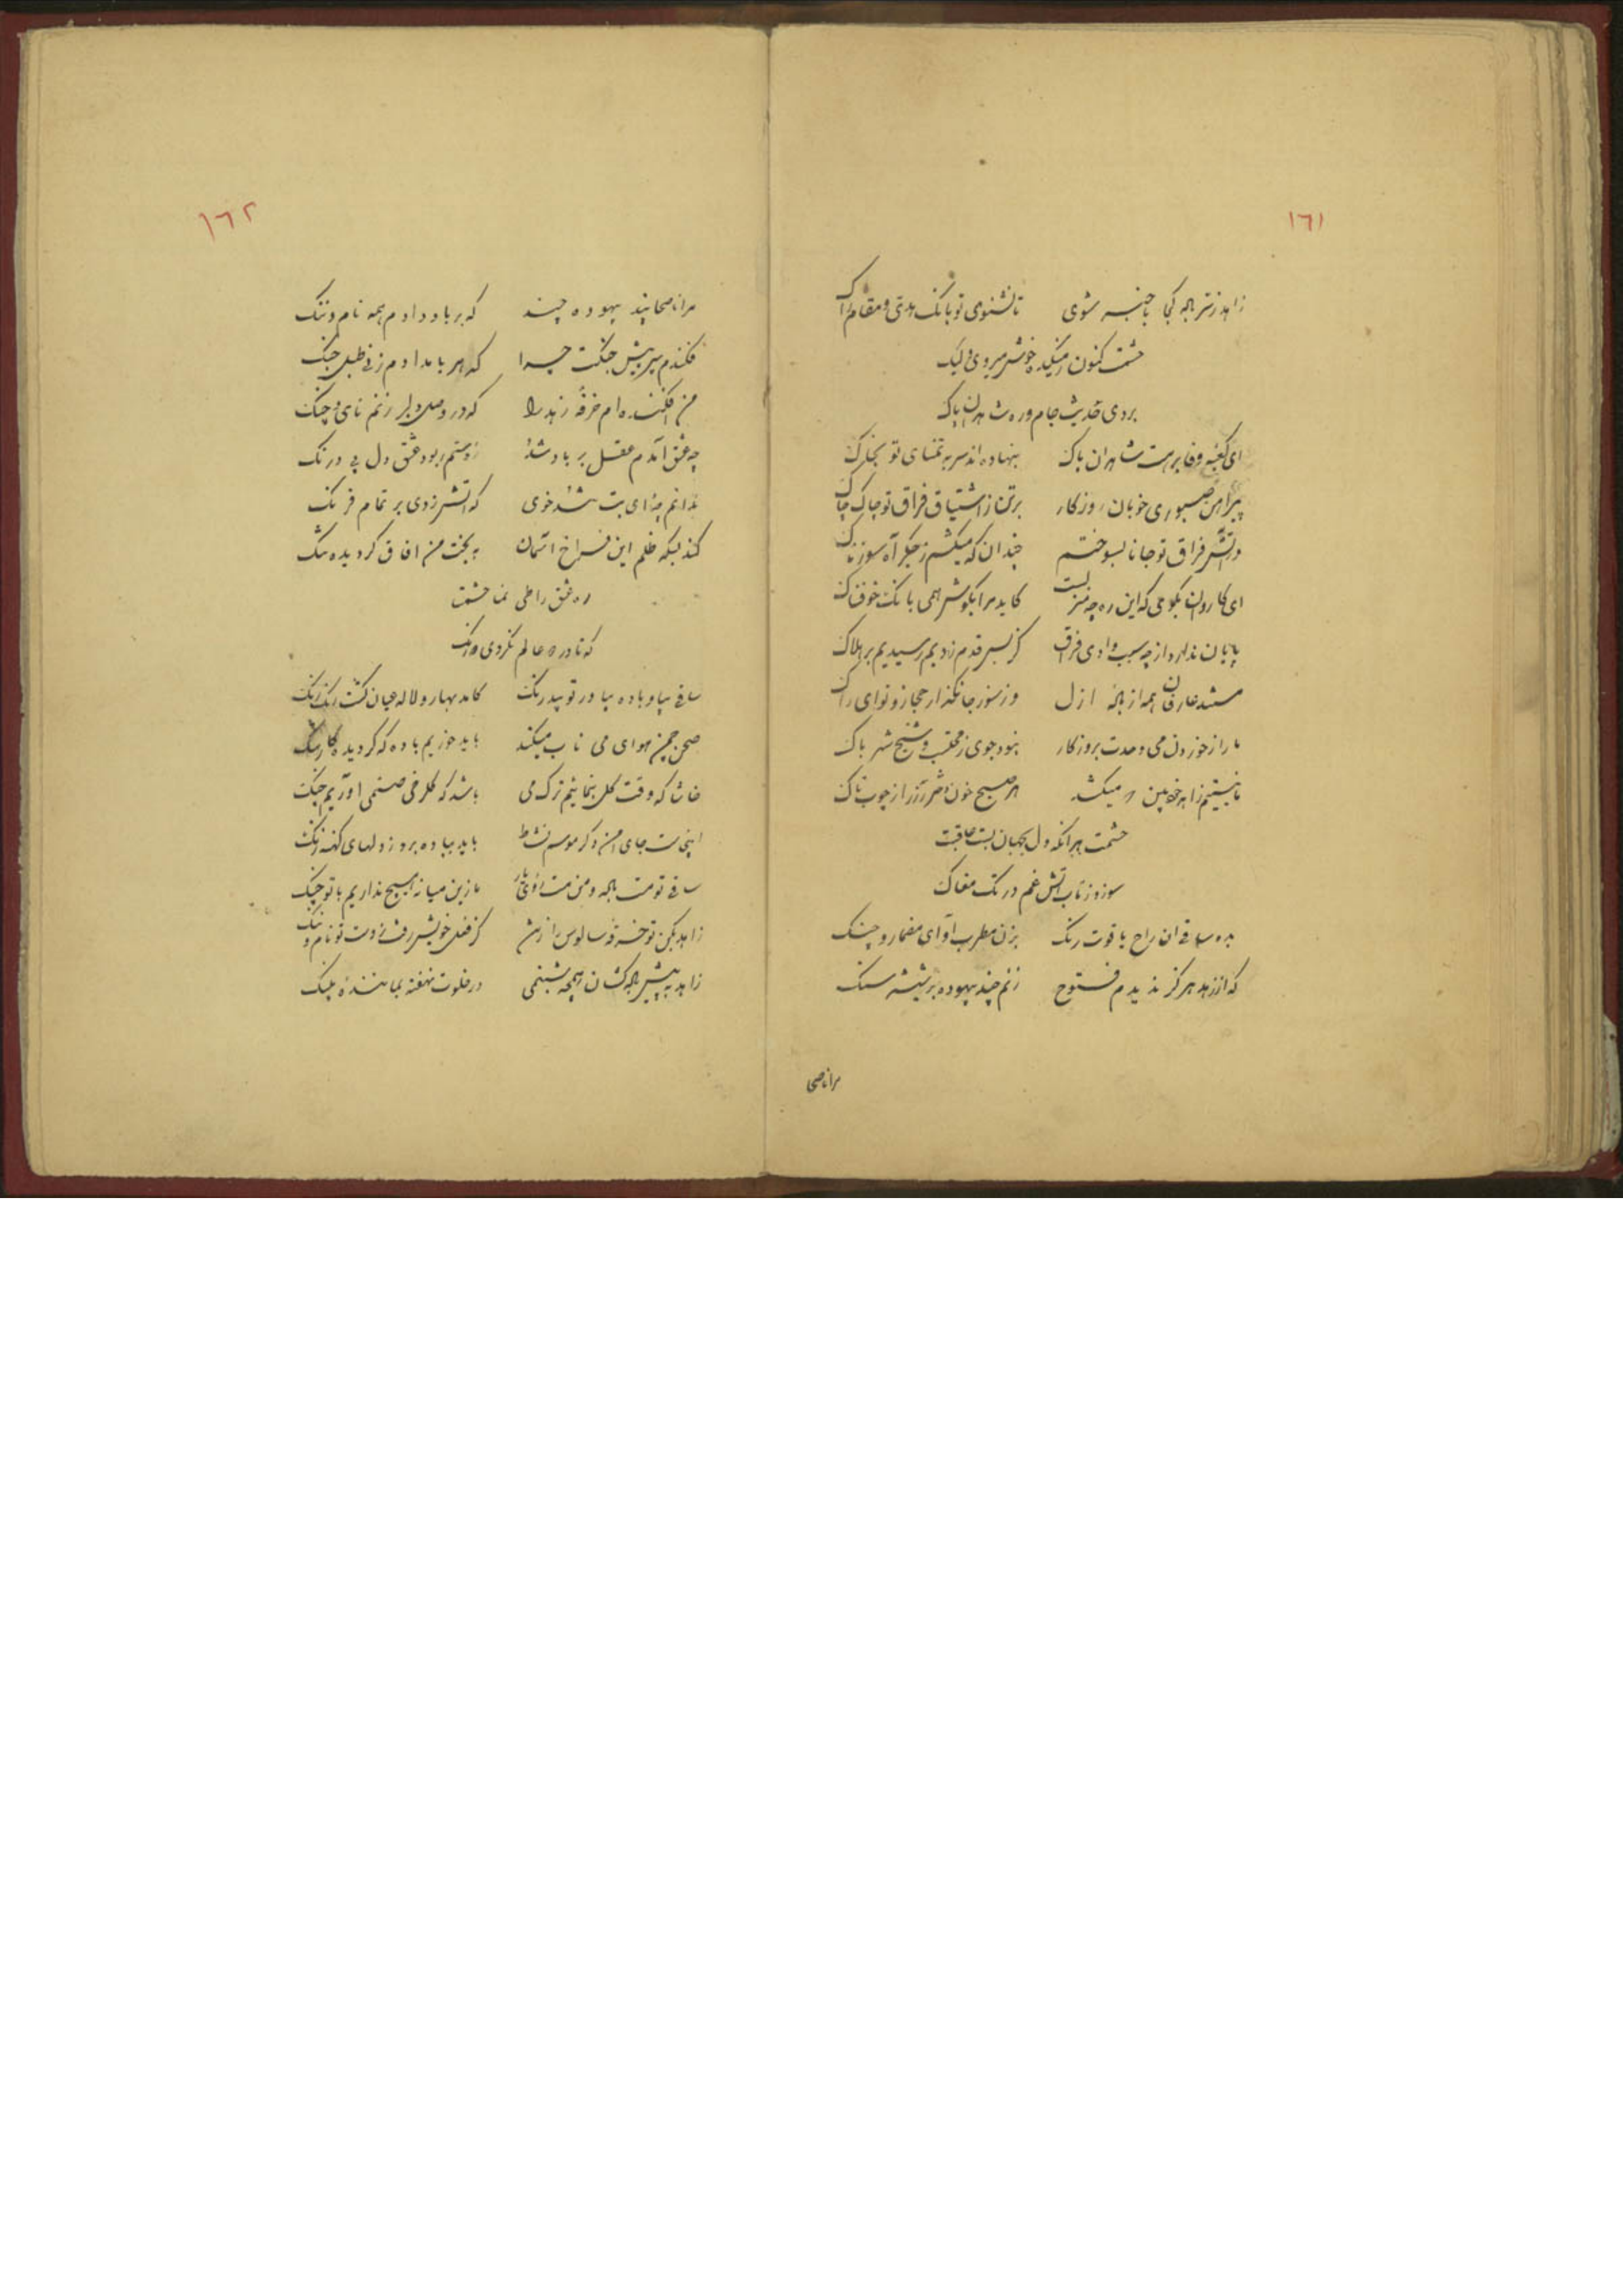 ١٦١
زاهد ز سر باده کجا با خبر شوی تا نشنوی تو بانک و مقام راک
حشمت کنون ز میکده خوش میروی ولیک
بردی حدیث جام و ره شاهدان پاک
ای کعبه وفا برهت شاهدان پاک بنهاده اند سر به تمنای تو بخاک
پیراهن صبوری خوبان روزکار برتن ز اشتیاق فراق تو چاک چاک
در آتش فراق تو جانا بسوختم چندان که میکشم ز جکر آه سوزناک
ای کاروان بکو می که این ره چه منزلست کاید مرا بکوش همی بانک خوفناک
پایان ندارد از چه سبب وادی فراق کز بس قدم زدیم رسیدیم بر هلاک
مستند عارفان همه از باده ازل وز سوز جانکداز حجاز و نوای راک
ما را ز خوردن می وحدت بروزکار نبود جوی ز محتسب و شیخ شهر باک
ما نیستیم زاهد خودبین که میکشد هر صبح خون دختر رز را ز چوب تاک
حشمت هر انکه دل بجهان بست عاقبت
سوزد ز تاب آتش غم در تک مغاک
بده ساقی ان راح یاقوت رنک بزن مطرب آوای مضمار و چنک
که از زهد هرکز ندیدم فتوح زنم چند بیهوده بر شیشه سنک
مرا ناصحی
١٦٢
مرا ناصحا پند بیهوده چند که بر باد دادم همه نام و ننک
فکندم سپر پیش جنکت چرا که هر بامدادم زنی طبل جنک
من افکنده ام خرقه زهد را که در وصل دلبر زنم نای و چنک
چه عشق آمدم عقل بر باد شد ز دستم ربود عشق دل بی درنک
ندانم چه ای بت تند خوی که آتش زدی بر تمام فرنک
کند بسکه ظلم این فراخ آسمان به بخت من افاق کردیده تنک
ره عشق را طی نما حشمت
که تا در عالم نکردی
ساقی بیا و باده بیاور تو بیدرنک کامد بهار و لاله عیان کشت رنک رنک
صحن چمن هوای می ناب میکند باید خوریم باده که کردیده کار تنک
حاشا که وقت کل بنمائیم ترک می باشد که کلرخی صنمی اوریم بچنک
اینجاست جای امن و کر موسم نشاط باید بباده برد ز دلهای کهنه زنک
ساقی تو مست باده و من مست روی یار ما زین میانه هیچ نداریم با تو جنک
زاهد بکن تو خرقه سالوس را ز تن کز فعل خویش رفت ز دست تو نام و ننک
زاهد به پیش باده کشان همچه شبنمی در خلوت نهفته بماننده پلنک